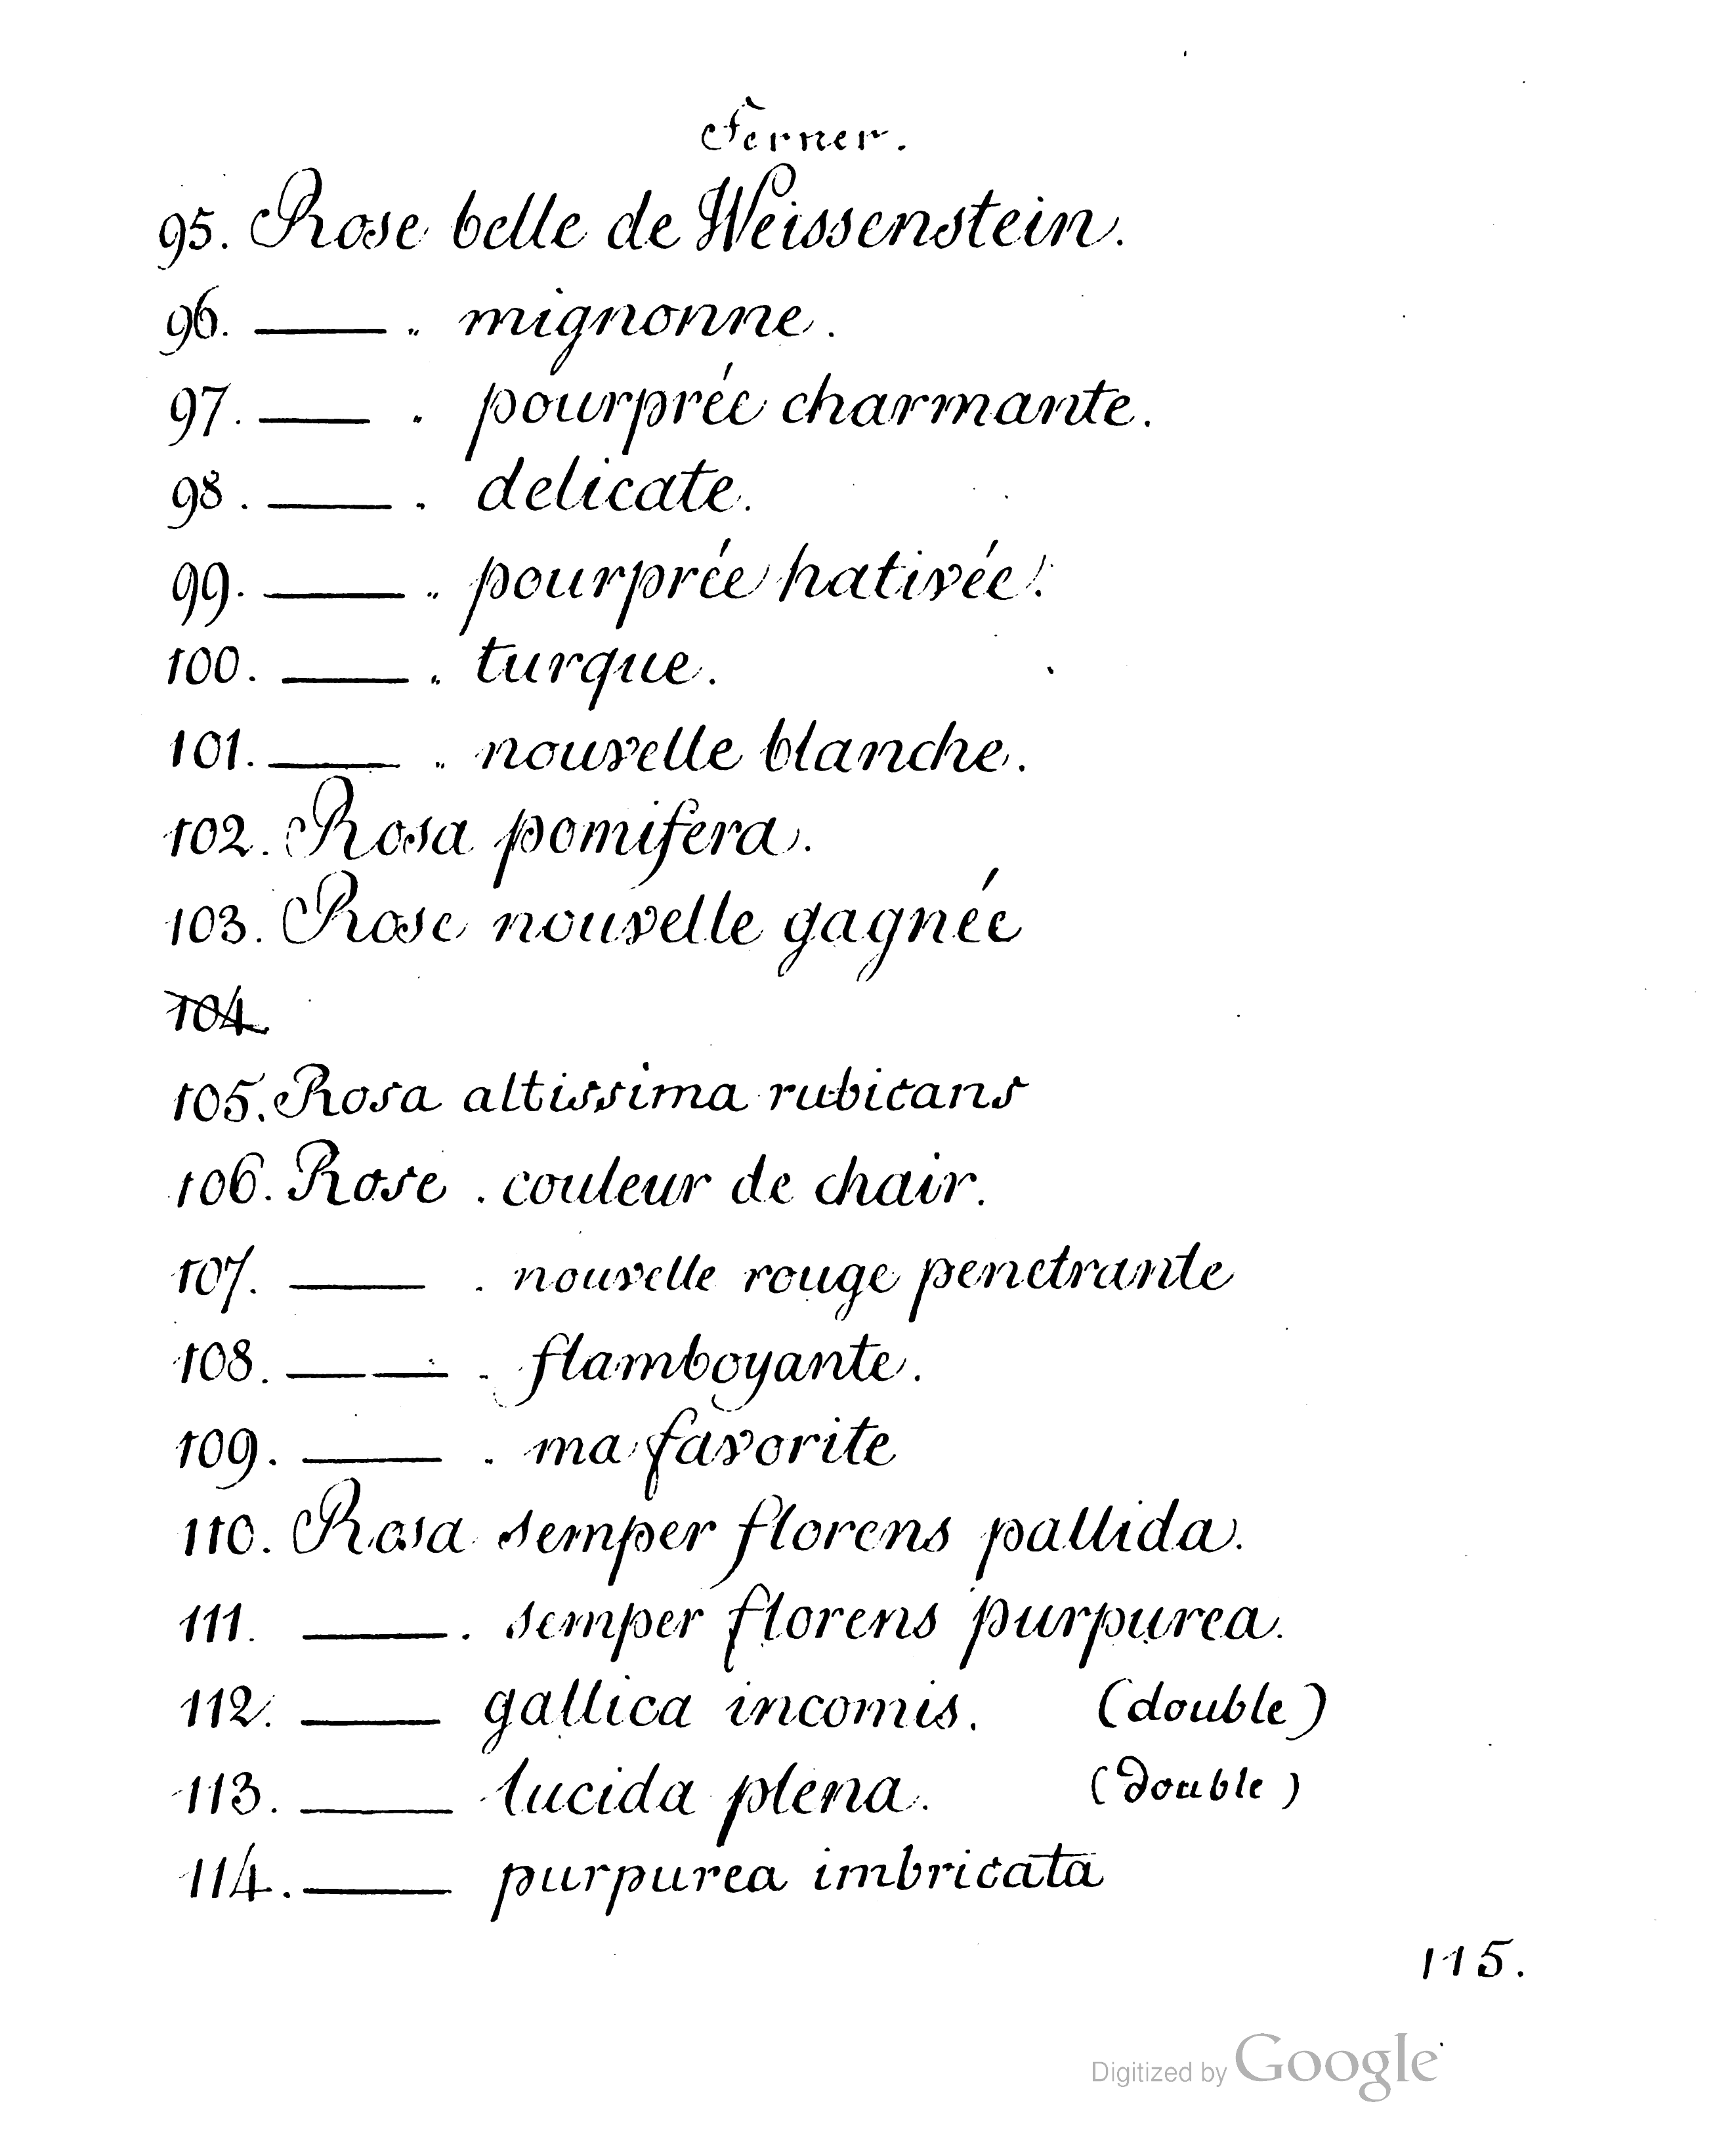 Ferner.
95. Rose belle de Weissenstein.
96. —— „ mignonne.
97. —— . pourprée charmante.
98. —— „ delicate.
99. —— „ pourprée hativée.
100. —— „ turque.
101. —— „ nouvelle blanche.
102. Rosa pomifera.
103. Rose nouvelle gagnée
104.
105. Rosa altissima rubicans
106. Rose . couleur de chair.
107. —— . nouvelle rouge penetrante
108. —— —— . flamboyante.
109. —— . ma favorite
110. Rosa semper florens pallida.
111. —— . semper florens purpurea.
112. —— gallica incomis. (double)
113. —— lucida plena. (double)
114. —— purpurea imbricata
115.
Digitized by Google